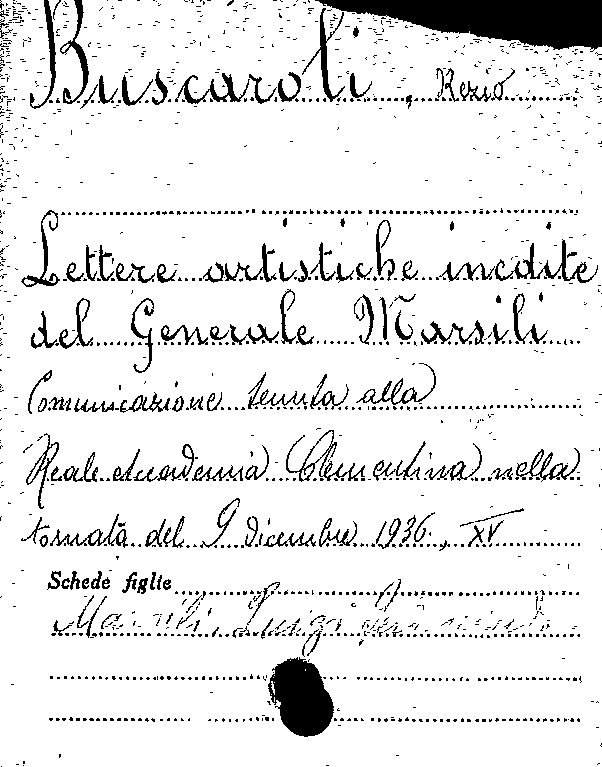 Buscaroli, Rezio
Lettere artistiche inedite
del Generale Marsili
Comunicazione tenuta alla
Reale Accademia Clementina nella
tornata del 9 dicembre 1936, XV
Schede figlie
Marsili, Luigi